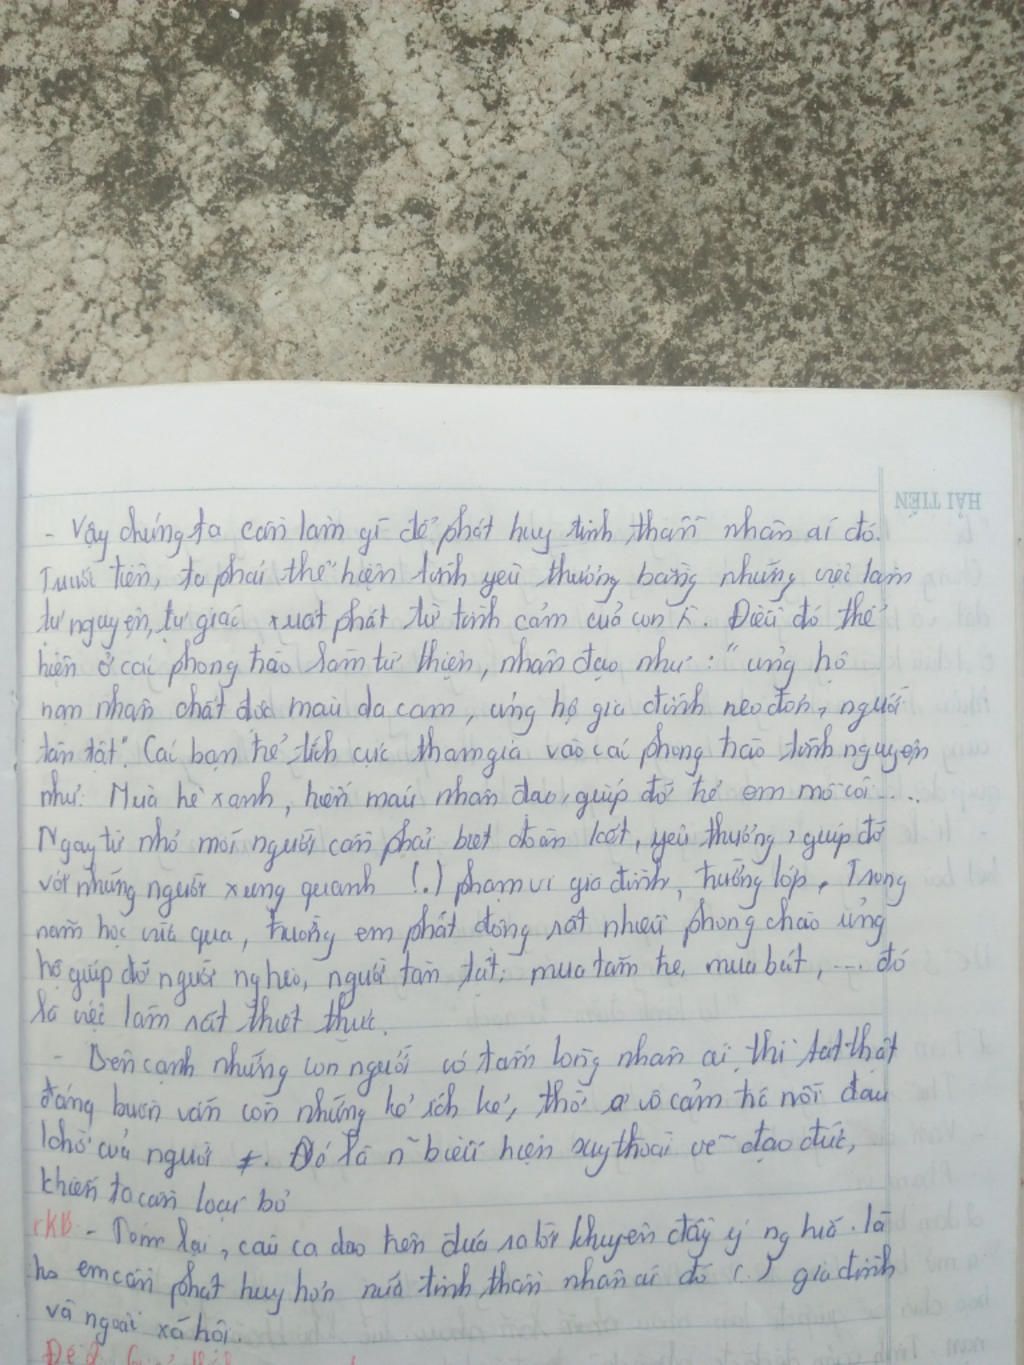 HẢI TIẾN
- Vậy chúng ta cần làm gì để phát huy tinh thần nhân ái đó.
Trước tiên, ta phải thể hiện tình yêu thương bằng những việc làm
tự nguyện, tự giác xuất phát từ tình cảm của con. Điều đó thể
hiện ở các phong trào làm từ thiện, nhân đạo như: "ủng hộ
nạn nhân chất độc màu da cam, ủng hộ gia đình neo đơn, người
tàn tật". Các bạn trẻ tích cực tham gia vào các phong trào tình nguyện
như: Mùa hè xanh, hiến máu nhân đạo, giúp đỡ trẻ em mồ côi....
Ngay từ nhỏ mỗi người cần phải biết đoàn kết, yêu thương, giúp đỡ
với những người xung quanh (.) phạm vi gia đình, trường lớp. Trong
năm học vừa qua, trường em phát động rất nhiều phong chào ủng
hộ giúp đỡ người nghèo, người tàn tật: mua tăm tre, mua bút, ... đó
là việc làm rất thiết thực.
- Bên cạnh những con người có tấm lòng nhân ái, thì thật
đáng buồn vẫn còn những kẻ ích kỉ, thờ ơ vô cảm trc nỗi đau
khổ của người ≠. Đó là n~ biểu hiện suy thoái về đạo đức,
khiến ta cần loại bỏ
*KB - Tóm lại, câu ca dao trên đưa ra lời khuyên đầy ý nghĩa. Là
hs em cần phát huy hơn nữa tinh thần nhân ái đó (.) gia đình
và ngoài xã hội.
Đề 2